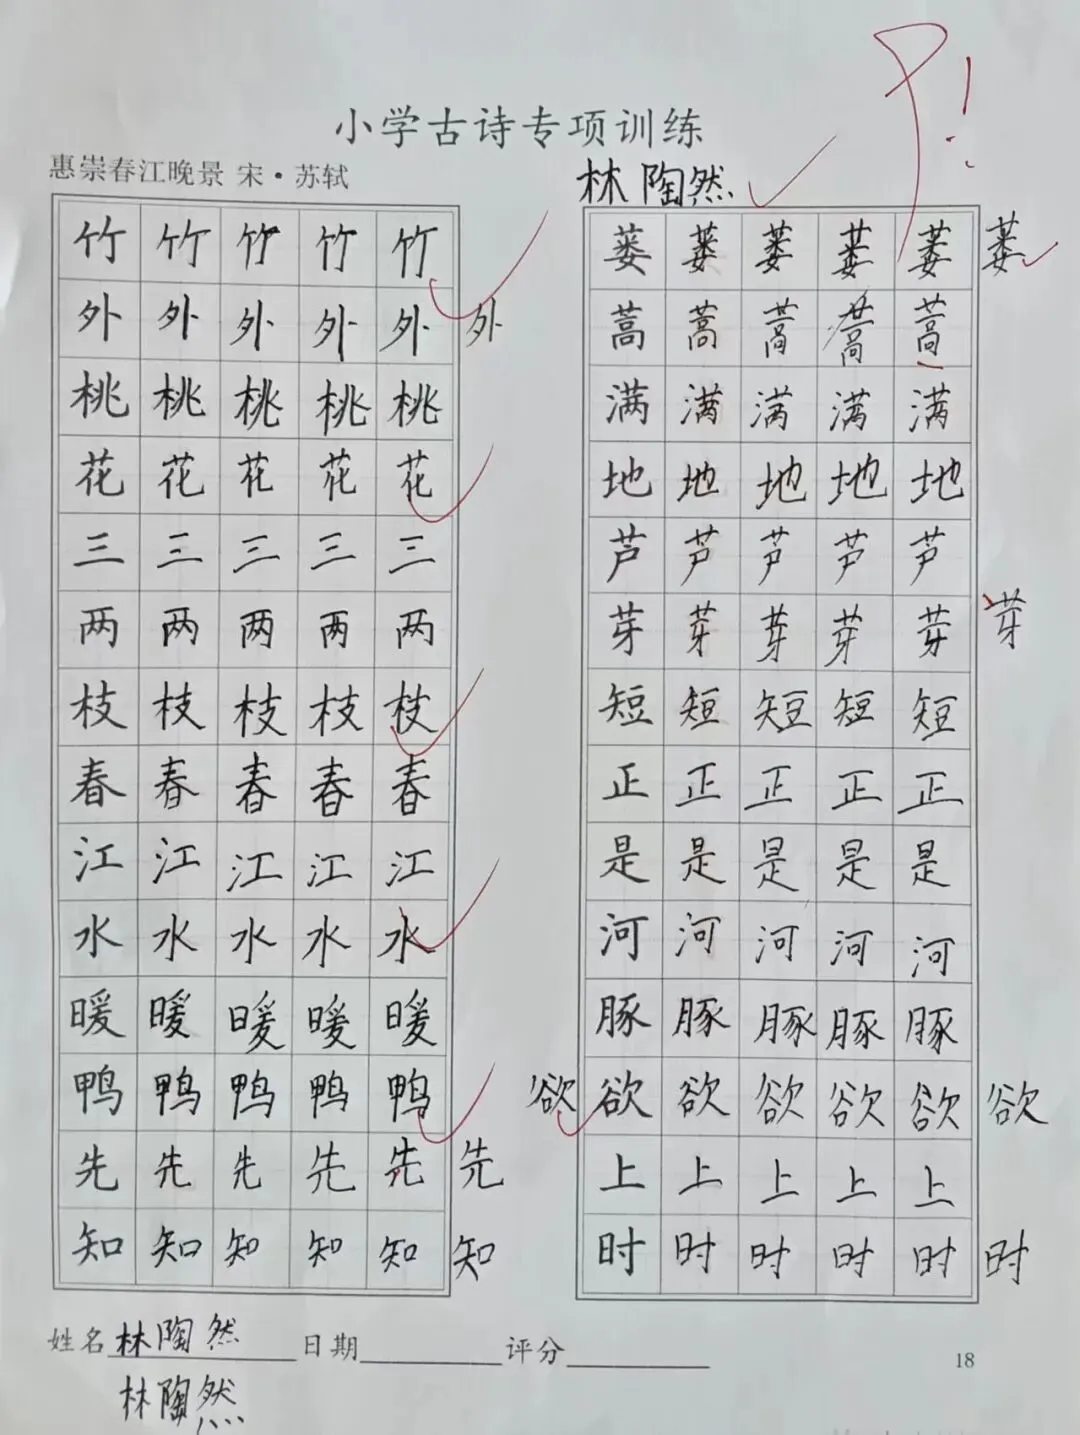 小学古诗专项训练
惠崇春江晚景 宋·苏轼
林陶然
竹竹竹竹竹
外外外外外外
桃桃桃桃桃
花花花花花
三三三三三
两两两两两
枝枝枝枝枝
春春春春春
江江江江江
水水水水水
暖暖暖暖暖
鸭鸭鸭鸭鸭
先先先先先先
知知知知知知
蒌蒌蒌蒌蒌蒌
蒿蒿蒿蒿蒿
满满满满满
地地地地地
芦芦芦芦芦
芽芽芽芽芽芽
短短短短短
正正正正正
是是是是是
河河河河河
豚豚豚豚豚
欲欲欲欲欲欲欲
上上上上上
时时时时时时
姓名林陶然 日期 评分
18
林陶然